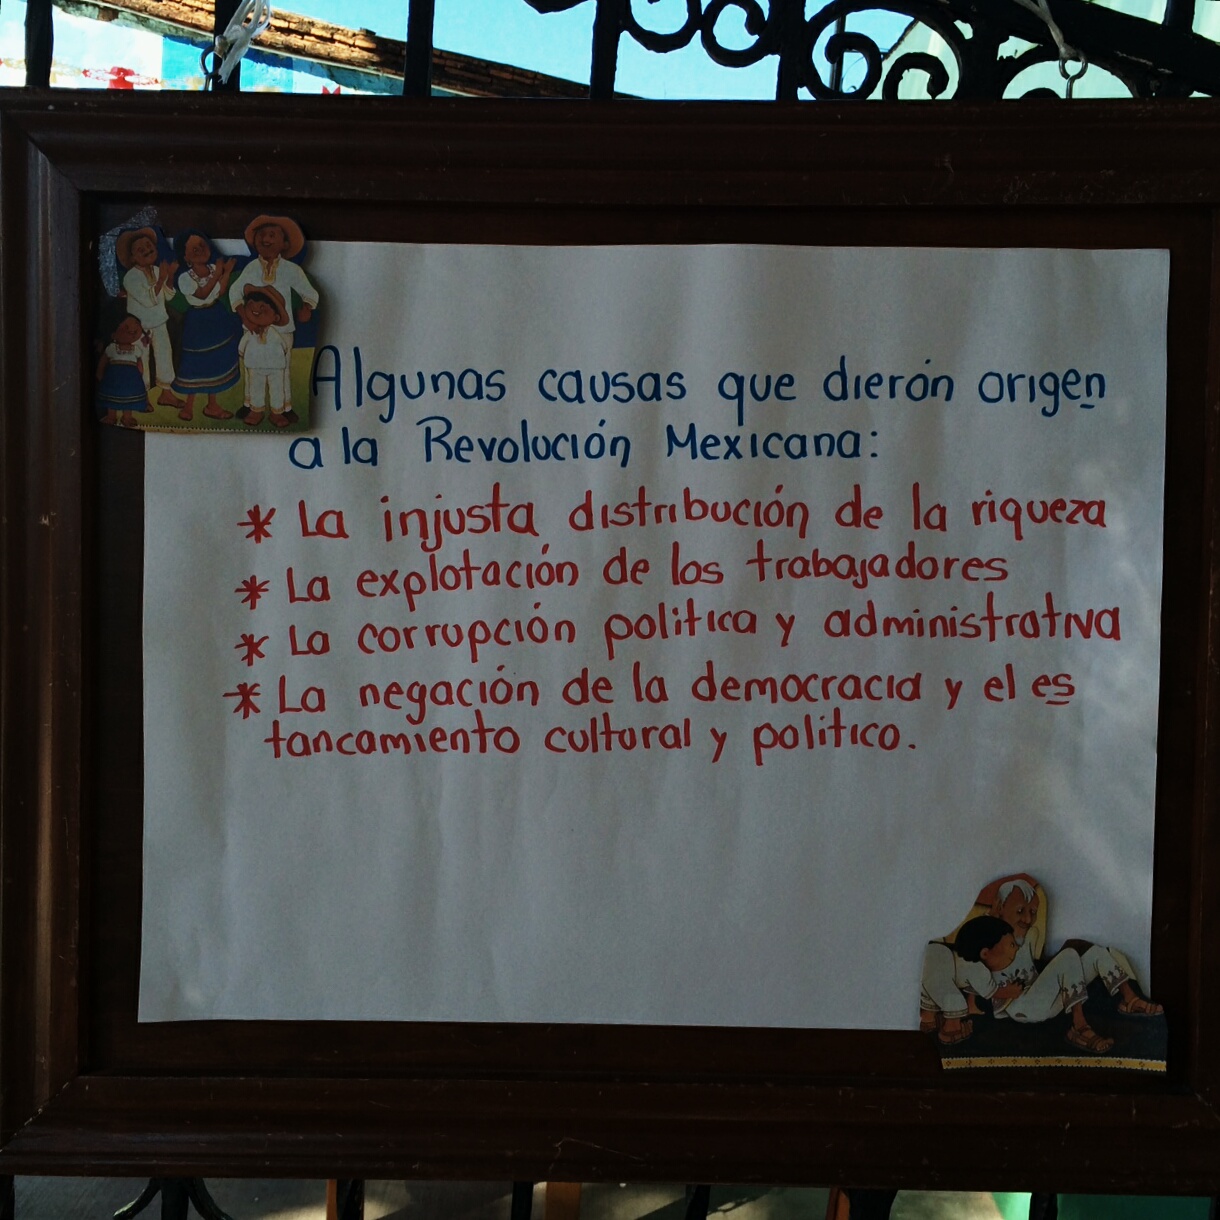 Algunas causas que dierón origen
a la Revolución Mexicana:
* La injusta distribución de la riqueza
* La explotación de los trabajadores
* La corrupción politica y administrativa
* La negación de la democracia y el es
tancamiento cultural y politico.